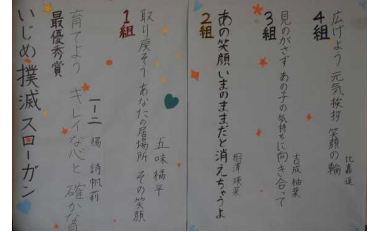 いじめ撲滅スローガン
最優秀賞
育てよう キレイな心と 確かな
一-二 楊 詩帆
1組
取り戻そう あなたの居場所 その笑顔
五味 福平
2組
あの笑顔 いまのままだと 消えちゃうよ
相澤 瑛菜
3組
見のがさず あの子の気持ちに 向き合って
古成 柚葉
4組
広げよう 元気挨拶 笑顔の輪